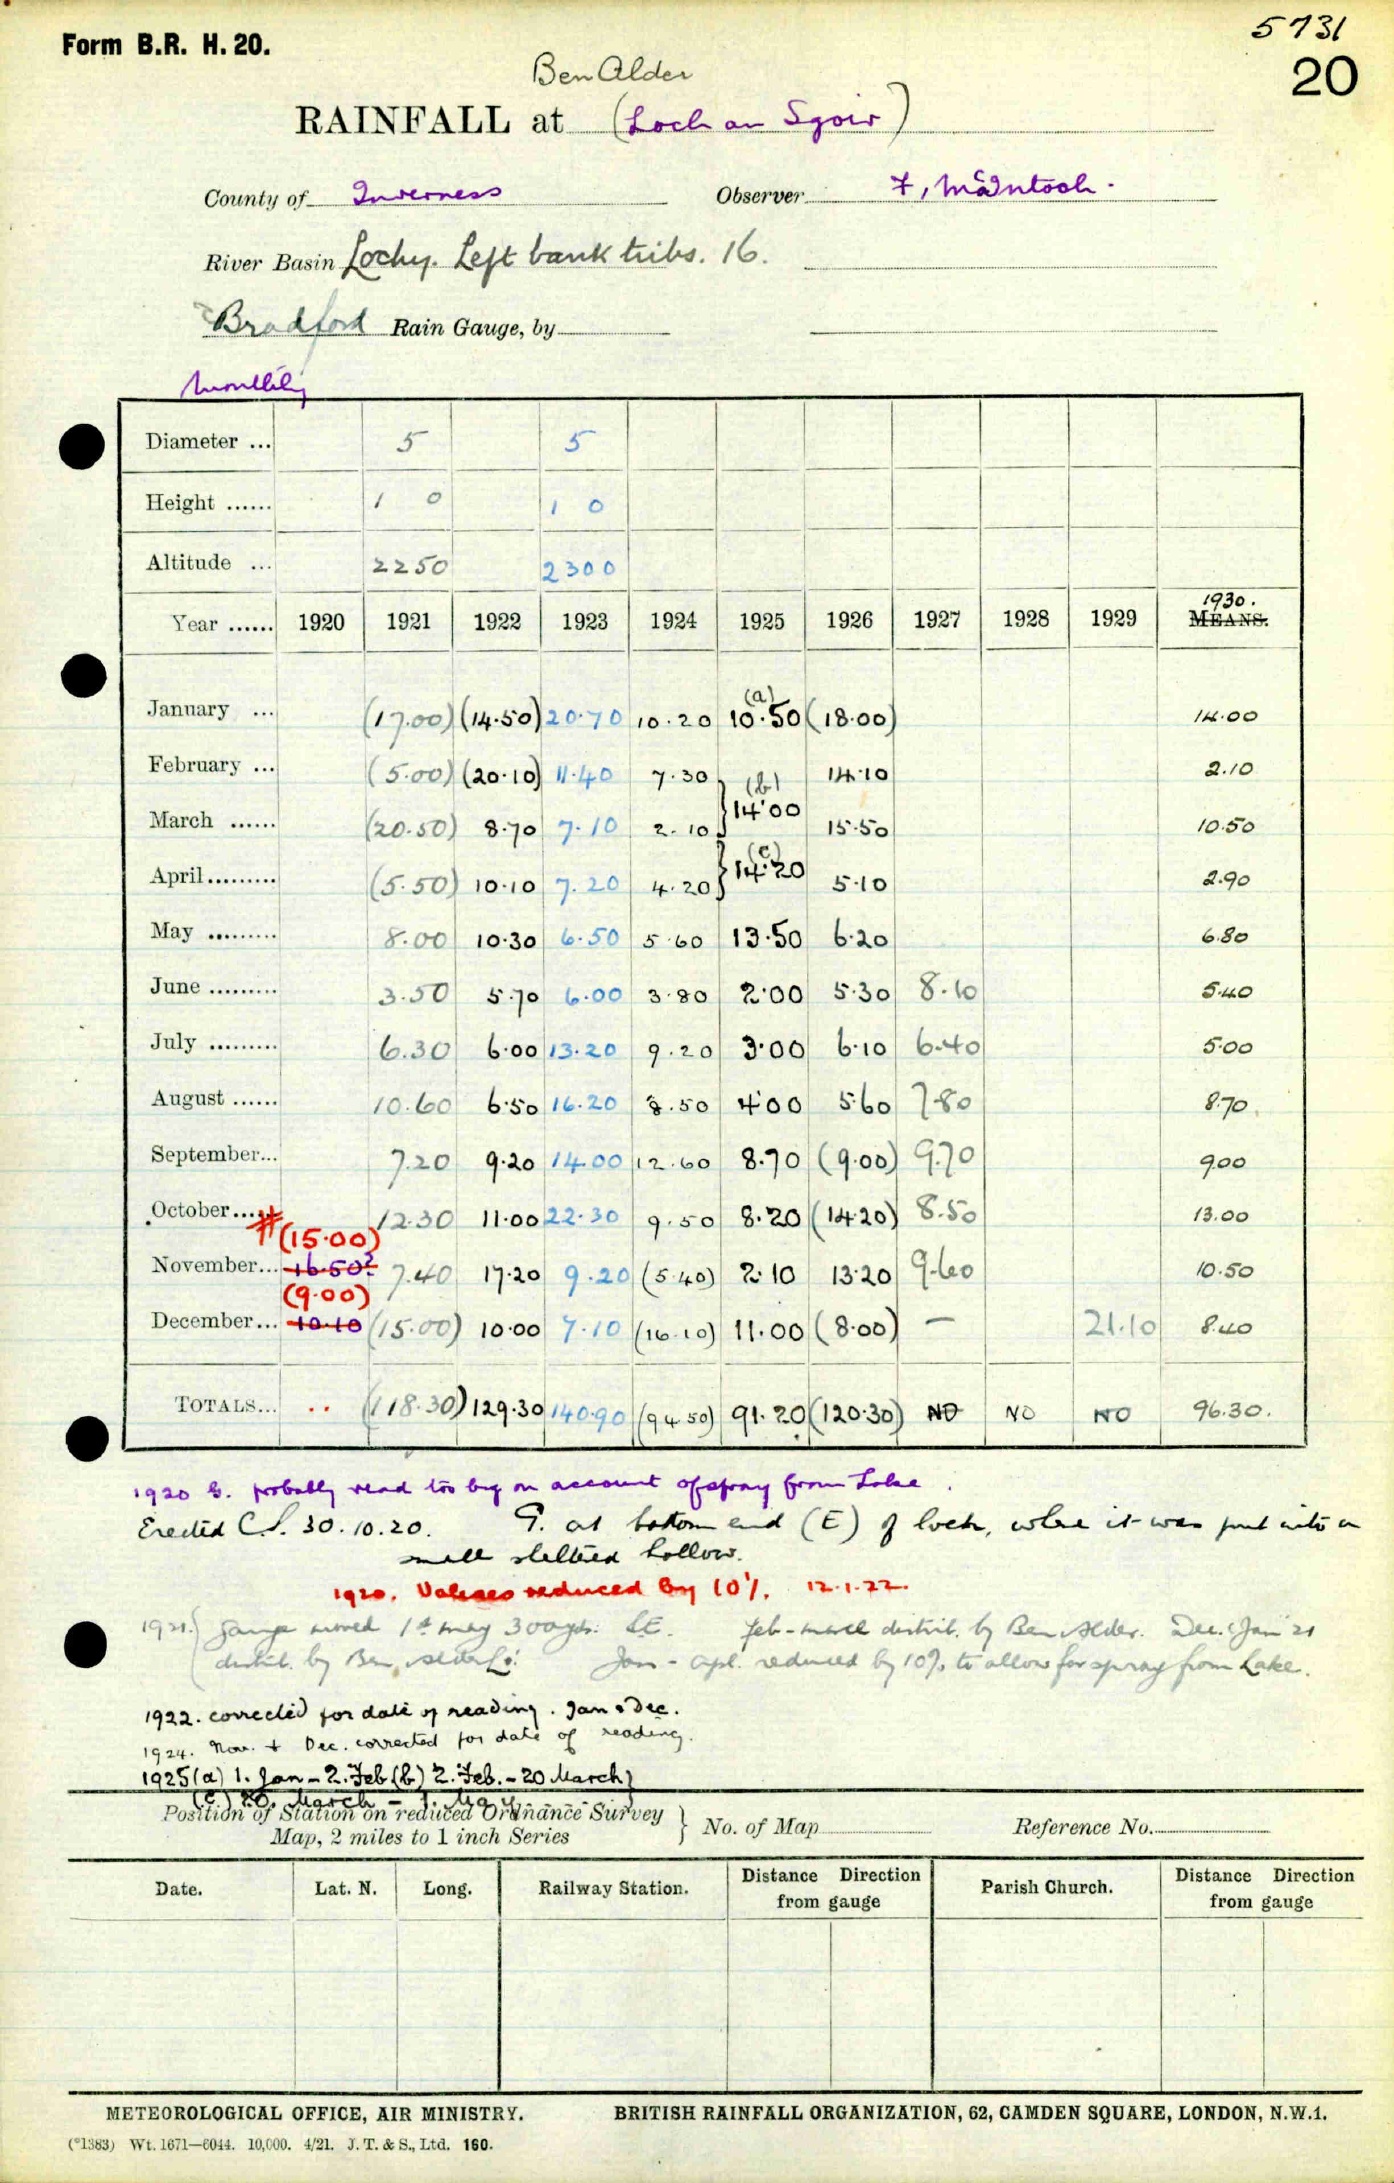 5731
Form B.R. H. 20.
20
Ben Alder
RAINFALL at (Loch an Sgoir)
County of Inverness Observer F, McIntosh.
River Basin Lochy. Left bank tribs. 16.
Bradford Rain Gauge, by
Monthly
Diameter ... 5 5
Height ...... 1 0 1 0
Altitude ... 2250 2300
1930.
Year ...... 1920 1921 1922 1923 1924 1925 1926 1927 1928 1929 MEANS.
(a)
January ... (17.00) (14.50) 20.70 10.20 10.50 (18.00) 14.00
February ... (5.00) (20.10) 11.40 7.30 (b) 14.10 2.10
March ...... (20.50) 8.70 7.10 2.10 } 14.00 15.50 10.50
(c)
April......... (5.50) 10.10 7.20 4.20 } 14.20 5.10 2.90
May ......... 8.00 10.30 6.50 5.60 13.50 6.20 6.80
June ......... 3.50 5.70 6.00 3.80 2.00 5.30 8.10 5.40
July ......... 6.30 6.00 13.20 9.20 3.00 6.10 6.40 5.00
August ...... 10.60 6.50 16.20 8.50 4.00 5.60 7.80 8.70
September... 7.20 9.20 14.00 12.60 8.70 (9.00) 9.70 9.00
October...... 12.30 11.00 22.30 9.50 8.20 (14.20) 8.50 13.00
# (15.00)
November... 16.50? 7.40 17.20 9.20 (5.40) 2.10 13.20 9.60 10.50
(9.00)
December... 10.10 (15.00) 10.00 7.10 (16.10) 11.00 (8.00) — 21.10 8.40
TOTALS... .. (118.30) 129.30 140.90 (94.50) 91.20 (120.30) NO NO NO 96.30.
1920 G. probably read too big on account of spray from Lake.
Erected C.S. 30.10.20. G. at bottom end (E) of loch, where it was put into a
small sheltered hollow.
1920. Values reduced by 10%. 12.1.22.
1921. Gauge moved 1st May 300yds. SE. Feb-March distrib. by Ben Alder. Dec. & Jan 21
distrib. by Ben Alder Jan - Apl. reduced by 10% to allow for spray from Lake.
1922. corrected for date of reading. Jan & Dec.
1924. Nov. + Dec. corrected for date of reading.
1925 (a) 1. Jan - 2. Feb (b) 2. Feb. - 20 March)
(c) 20. March - 1. May
Position of Station on reduced Ordnance Survey
Map, 2 miles to 1 inch Series } No. of Map Reference No.
Date. Lat. N. Long. Railway Station. Distance from gauge Direction Parish Church. Distance from gauge Direction
METEOROLOGICAL OFFICE, AIR MINISTRY. BRITISH RAINFALL ORGANIZATION, 62, CAMDEN SQUARE, LONDON, N.W.1.
(*1383) Wt. 1671—6044. 10,000. 4/21. J. T. & S., Ltd. 160.